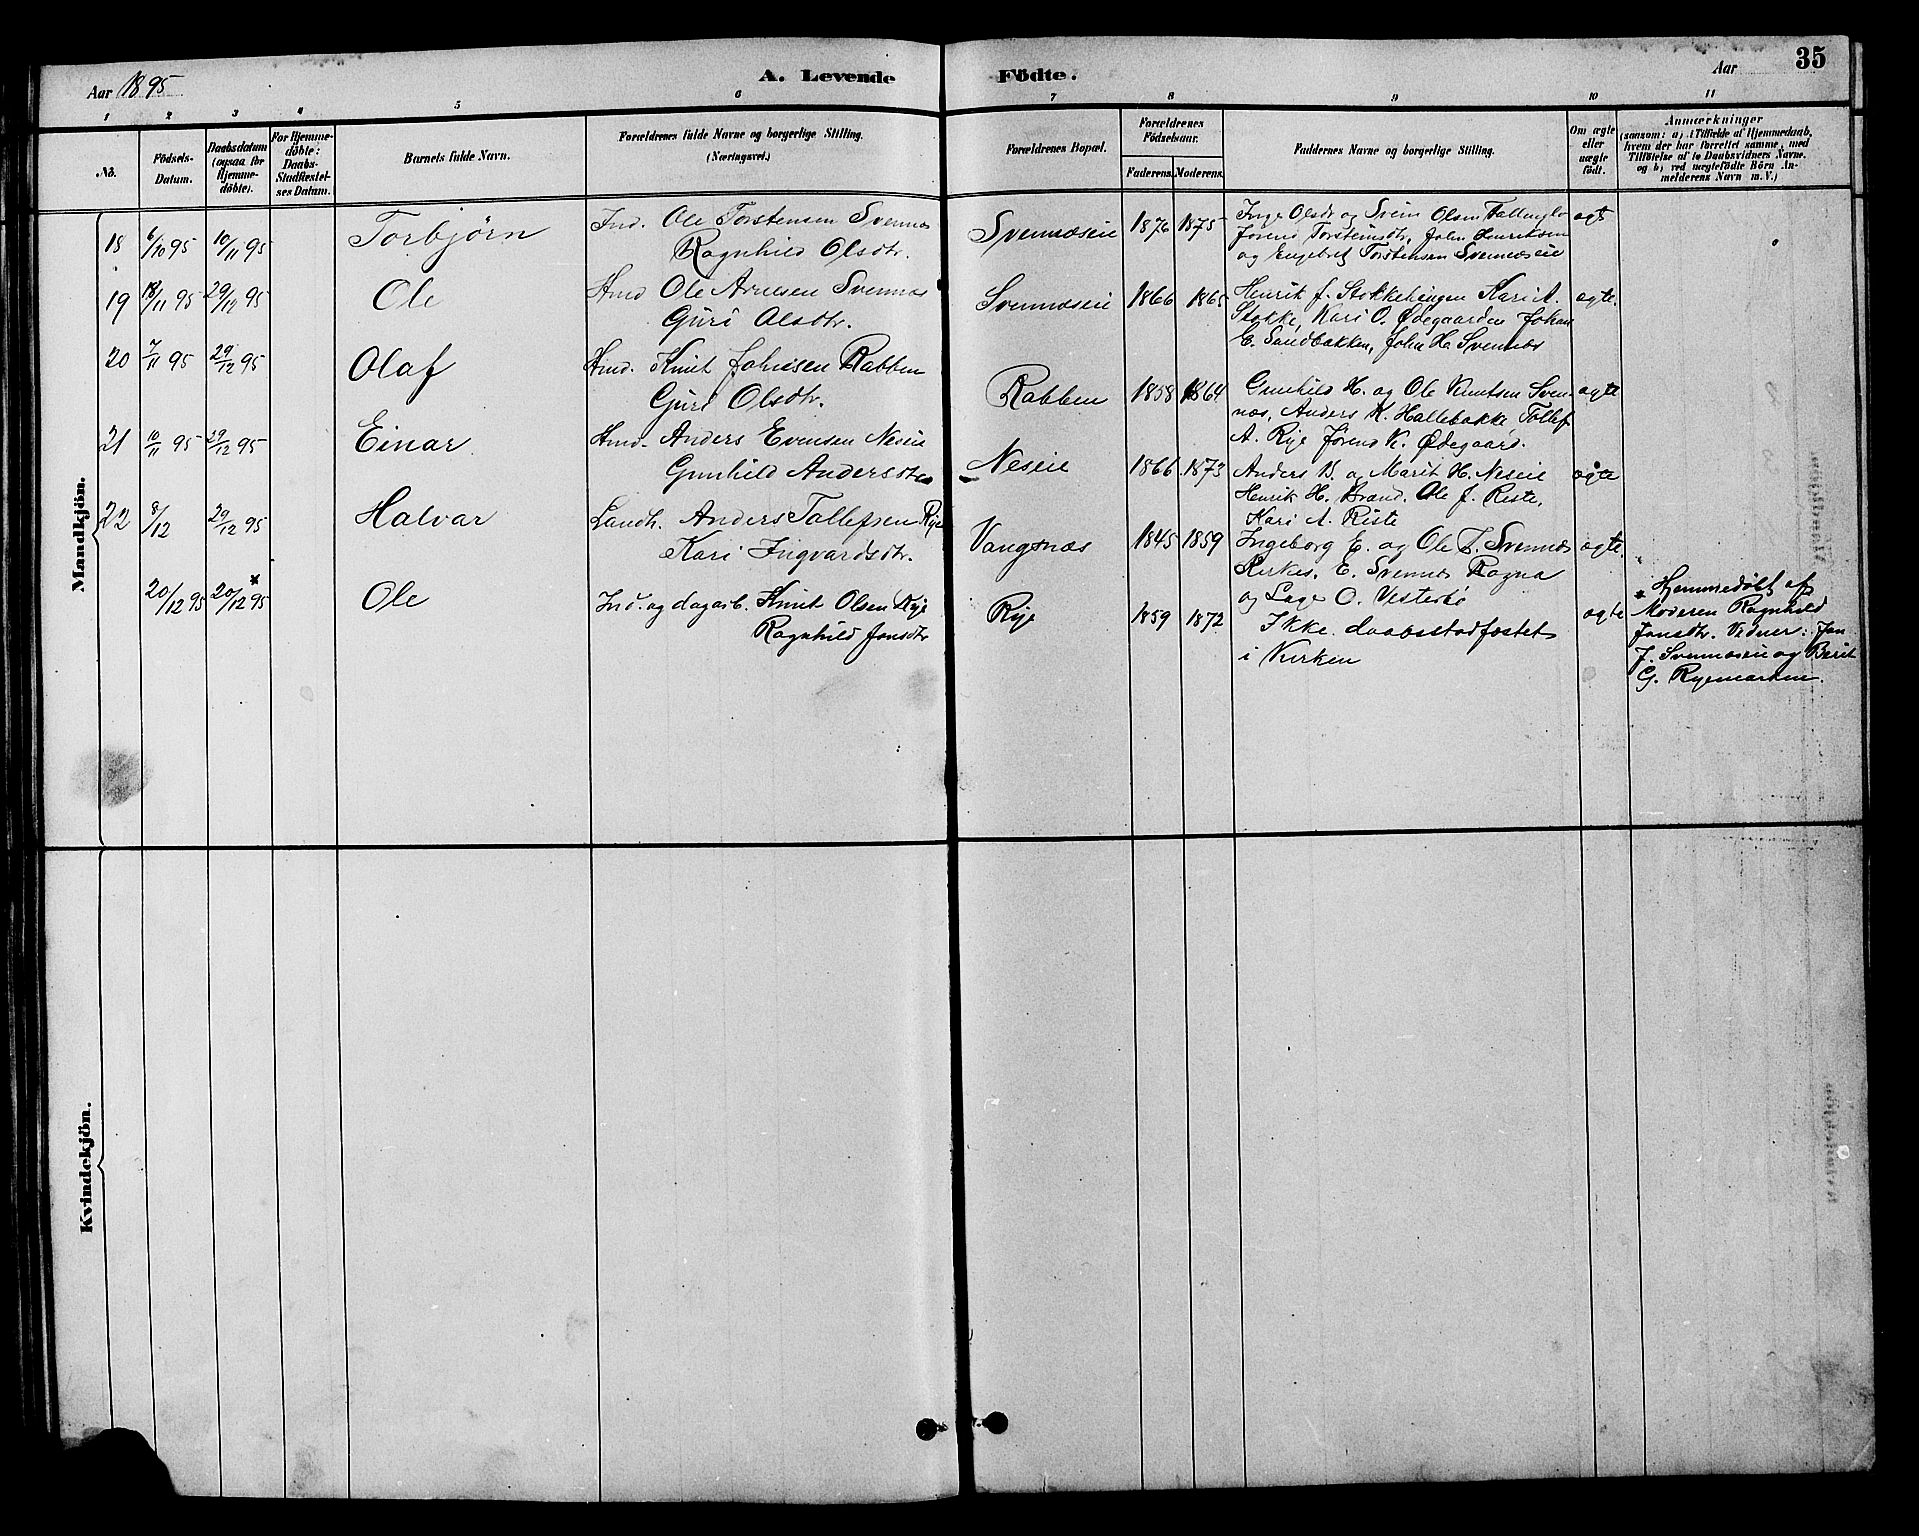 Aar 1895
A. Levende
Födte.
Aar
35
1 2 3 4 5 6 7 8 9 10 11
No.
Födsels-
Datum.
Daabsdatum
(ogsaa for
Hjemme-
döbte).
For Hjemme-
döbte:
Daabs-
Stadfæstel-
ses Datum.
Barnets fulde Navn.
Forældrenes fulde Navne og borgerlige Stilling.
(Næringsvei.)
Forældrenes Bopæl.
Forældrenes
Födselsaar.
Faderens. Moderens.
Faddernes Navne og borgerlige Stilling.
Om ægte
eller
uægte
födt.
Anmærkninger
(saasom: a) i Tilfælde af Hjemmedaab,
hvem der har forrettet samme, med
Tilföielse af to Daabsvidners Navne.
og b) ved uægtefödte Börn An-
melderens Navn m. V.)
Mandkjön.
18 6/10 95 10/11 95 Torbjörn
Ind. Ole Torstensen Svennæs
Ragnhild Olsdtr.
Svennæseie 1876 1875
Inge Olsdr og Svein Olsen
Jörend Torsteinsdtr, John Henriksen
og Engebret Torstensen Svennæseie
ægte
19 18/11 95 29/12 95 Ole
Hmd Ole Arnesen Svennæs
Guri Olsdtr.
Svennæseie 1866 1865
Henrik J. Stokkehengen Kari A.
Stokke, Kari O. Ødegaarden Johan
E. Sandbakken, John H. Svennæs
ægte.
20 7/11 95 29/12 95 Olaf
Hmd. Knut Johnsen Rabben
Guri Olsdtr.
Rabben 1858 1864
Gunhild H. og Ole Knutsen Sven-
næs, Anders K. Hallebakke Tollef
A. Rye Jörend K. Ødegaard.
ægte
21 10/11 95 29/12 95 Einar
Hmd. Anders Evensen Neseie
Gunhild Andersdtr
Neseie 1866 1873
Anders B. og Marit H. Neseie
Henrik H. Brænd. Ole J. Riste,
Kari A. Riste
ægte
22 8/12 29/12 95 Halvar
Landh. Anders Tollefsen Rye
Kari Ingvardsdtr.
Vangsnæs 1845 1859
Ingeborg E. og Ole T. Svennæs
Kirkes. E. Svennæs Ragna
og Lage O. Vesterbö
ægte.
20/12 95 20/12 95 * Ole
Ind. og dagarb. Knut Olsen Rye
Ragnhild Jonsdtr
Rye 1859 1872
Ikke daabsstadfæstet
i Kirken
ægte
* Hjemmedøbt af
Moderen Ragnhild
Jonsdtr. Vidner: Jon
J. Svennæseie og Berit
G. Ryemarken.
Kvindekjön.